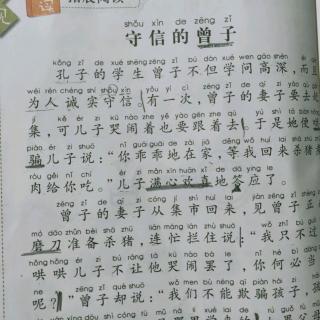 拓展阅读
shǒu xìn de zēng zǐ
守信的曾子
kǒng zǐ de xué shēng zēng zǐ bú dàn xué wèn gāo shēn ér
孔子的学生曾子不但学问高深，而且
wéi rén chéng shí shǒu xìn yǒu yí cì zēng zǐ de qī zi yào qù
为人诚实守信。有一次，曾子的妻子要去赶
jí kě ér zi kū nào zhe yě yào gēn zhe qù yú shì tā
集，可儿子哭闹着也要跟着去。于是她便哄
piàn ér zi shuō nǐ guāi guāi de zài jiā děng wǒ huí lai shā zhū
骗儿子说：“你乖乖地在家，等我回来杀猪
ròu gěi nǐ chī ér zi mǎn xīn huān xǐ de dā ying le
肉给你吃。”儿子满心欢喜地答应了。
zēng zǐ de qī zi cóng jí shì huí lái jiàn zēng zǐ
曾子的妻子从集市回来，见曾子正
mó dāo zhǔn bèi shā zhū lián máng lán zhù shuō wǒ zhǐ bú guò
磨刀准备杀猪，连忙拦住说：“我只不过
hǒng hǒng ér zi bú ràng tā kū nào bà le nǐ hé bì dàng
哄哄儿子不让他哭闹罢了，你何必当
ne zēng zǐ què shuō wǒ men bù néng qī piàn hái zi
呢？”曾子却说：“我们不能欺骗孩子，孩